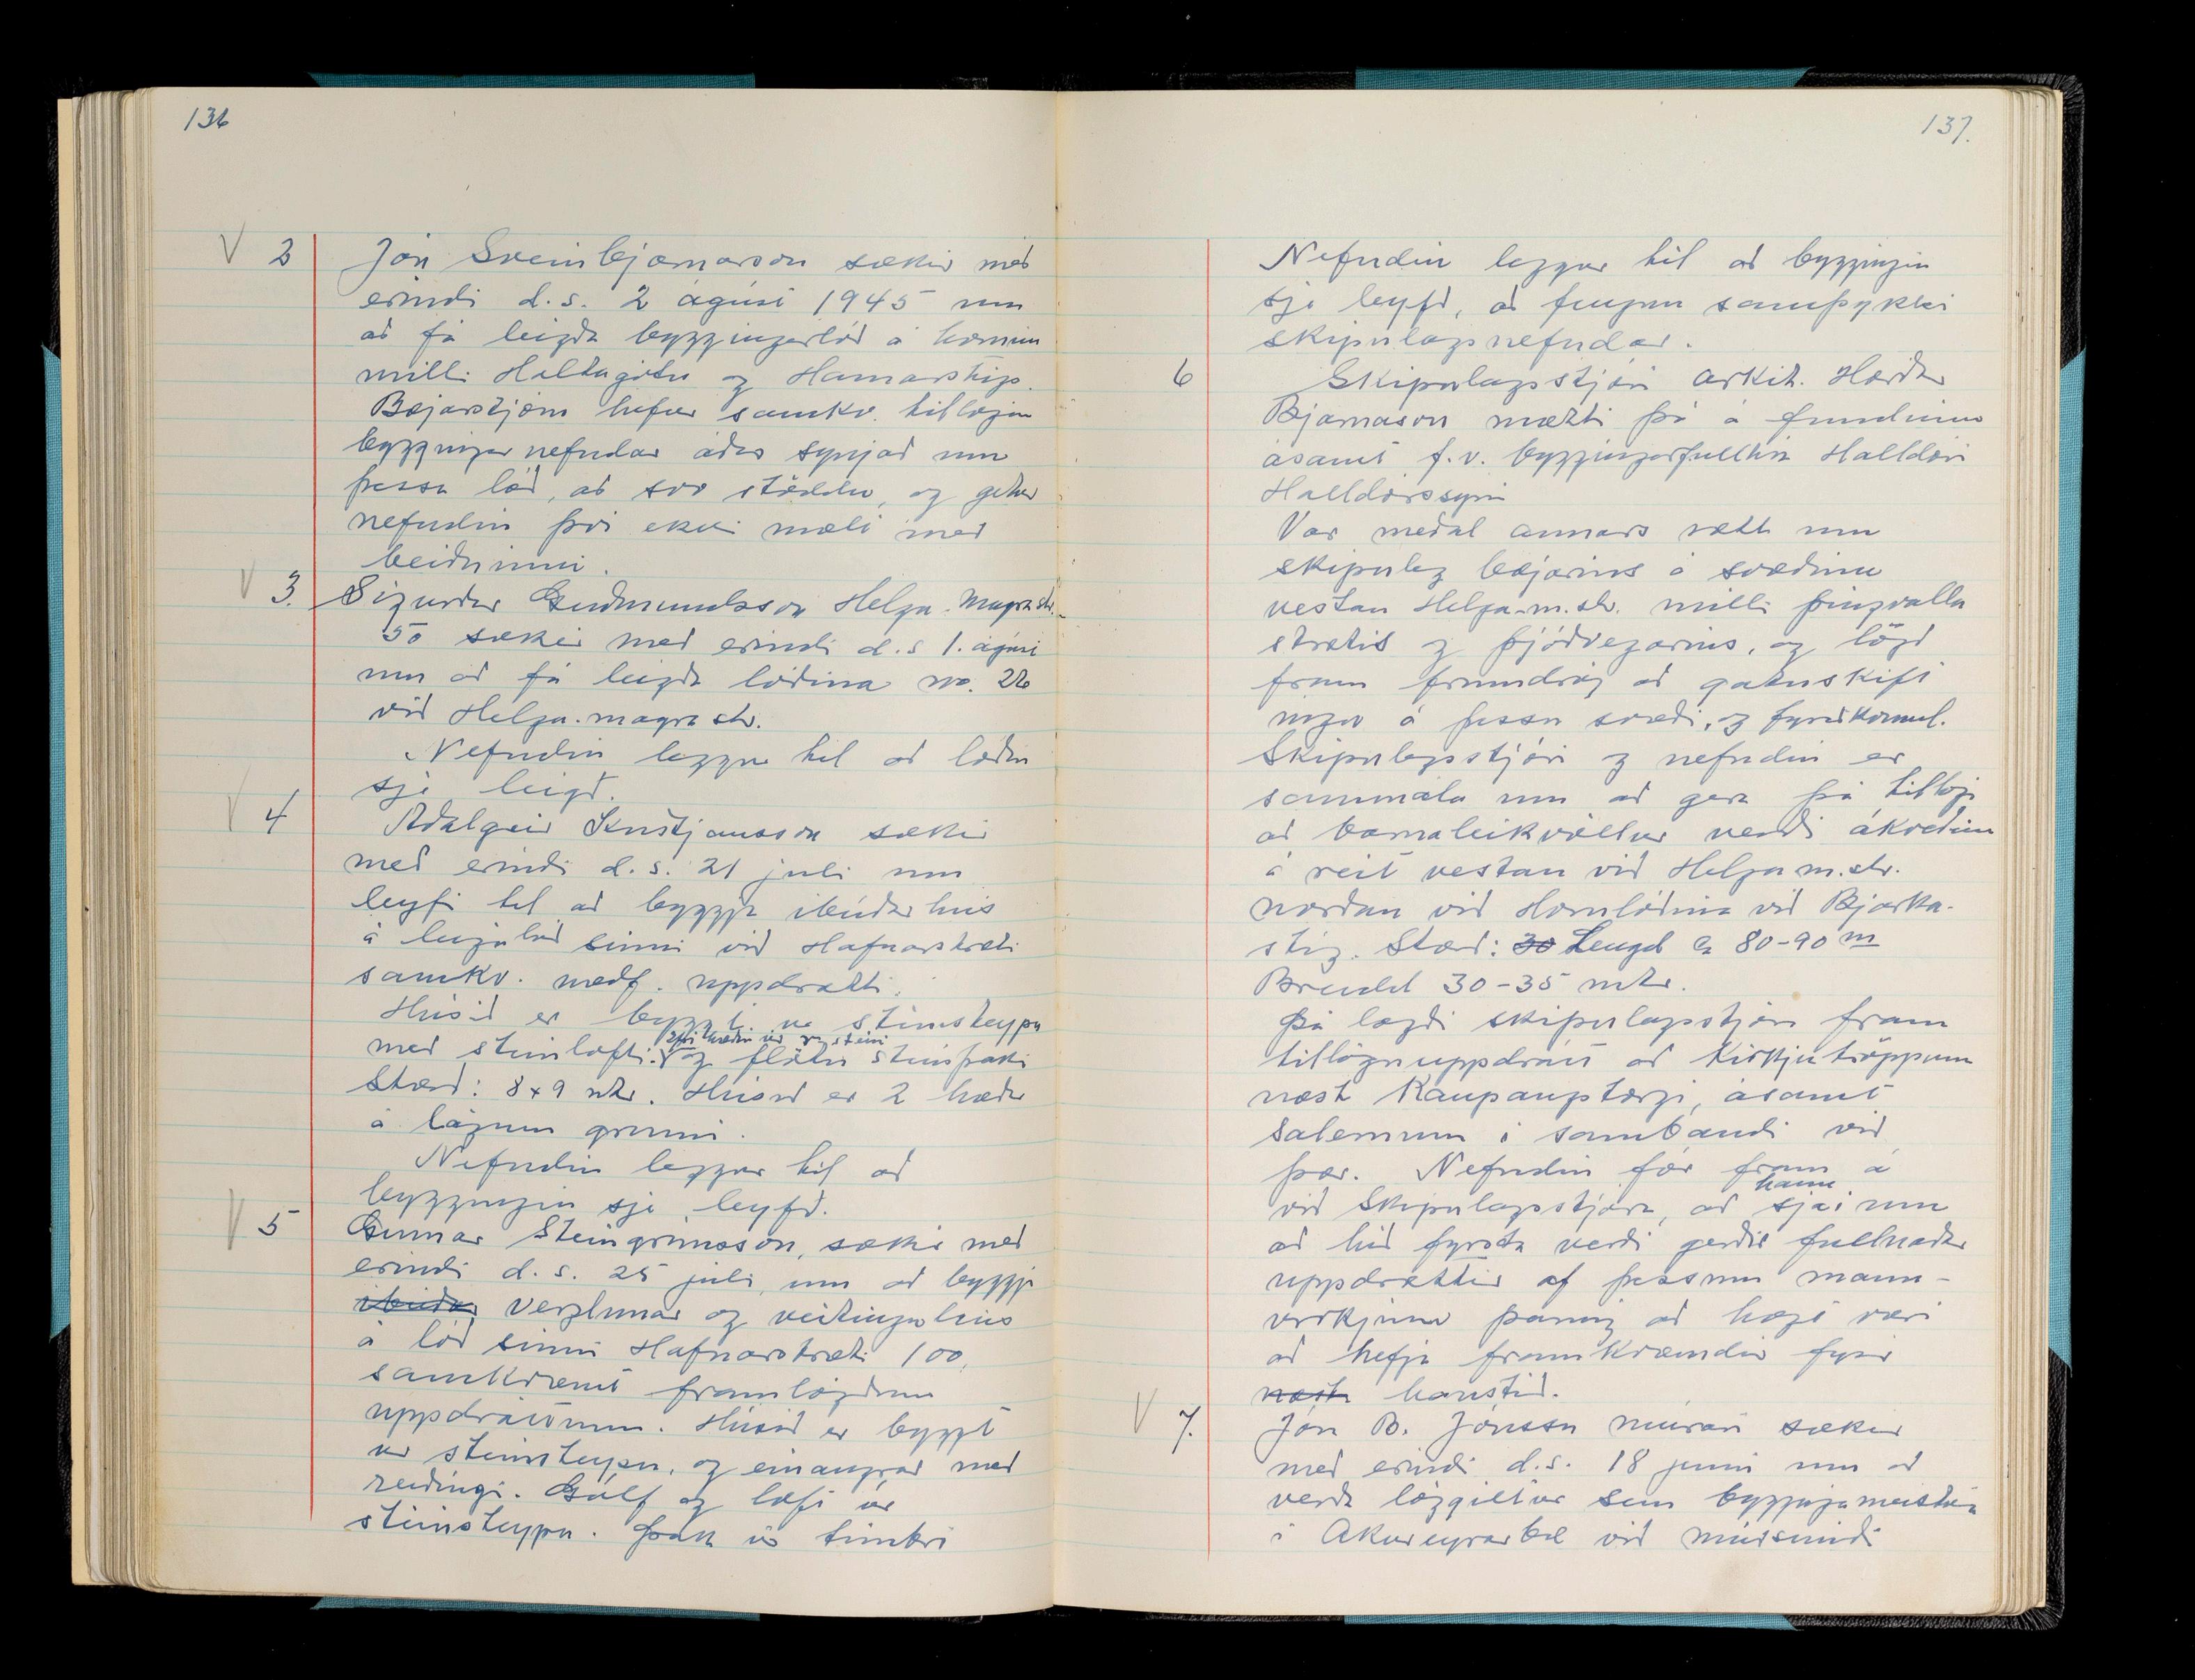 136
V 2 Jón Sveinbjarnarson sækir með
erindi d.s. 2 ágúst 1945 um
að fá leigða byggingarlóð á horninu
milli Holtagötu og Hamarstígs.
Bæjarstjórn hefur samkv. tillögum
byggingarnefndar áður synjað um
þessa lóð, að svo stöddu, og getur
nefndin því ekki mælt með
beiðninni.
V 3. Sigurður Guðmundsson Helga-Magra str.
50 sækir með erindi d.s 1. ágúst
um að fá leigða lóðina no. 26
við Helga-magra str.
Nefndin leggur til að lóðin
sje leigð.
V 4 Aðalgeir Kristjánsson sækir
með erindi d.s. 21 júlí um
leyfi til að byggja íbúðarhús
á leigulóð sinni við Hafnarstræti
samkv. meðf. uppdrætti.
Húsið er byggt úr steinsteypu
efri hæðin úr r. steini
með steinlofti. V og flötu steinþaki
Stærð: 8x9 mtr. Húsið er 2 hæðir
á lágum grunni.
Nefndin leggur til að
byggingin sje leyfð.
V 5 Gunnar Steingrímsson, sækir með
erindi d.s. 25 júlí, um að byggja
íbúðar verzlunar og veitingahús
á lóð sinni Hafnarstræti 100,
samkvæmt framlögðum
uppdráttum. Húsið er byggt
úr steinsteypu, og einangrað með
reiðingi. Gólf og loft úr
steinsteypu. Þak úr timbri
137.
Nefndin leggur til að byggingin
sje leyfð, að fengnu samþykki
skipulagsnefndar.
6 Skipulagsstjóri arkit. Hörður
Bjarnason mætti þá á fundinum
ásamt f.v. byggingarfulltrúa Halldóri
Halldórssyni
Var meðal annars rætt um
skipulag bæjarins á svæðinu
vestan Helga-m.str. milli þingvalla
strætis og þjóðvegarins, og lögð
fram frumdrög að gatnaskift
ingu á þessu svæði, og fyrirkomul.
Skipulagsstjóri og nefndin er
sammála um að gera þá tillögu
að barnaleikvöllur verði ákveðinn
á reit vestan við Helga m.str.
norðan við Hornlóðina við Bjarka-
stíg. Stærð: 30 Lengd ca 80-90 m
Breidd 30-35 mtr.
Þá lagði skipulagsstjóri fram
tillöguuppdrátt að Kirkjutröppum
næst Kaupangstorgi, ásamt
salernum í sambandi við
þær. Nefndin fór fram á
hann
við Skipulagsstjóra, að sjái um
að hið fyrsta verði gerðir fullnaðar
uppdrættir af þessum mann-
virkjum þannig að hægt væri
að hefja framkvæmdir fyrir
næsta haustið.
V 7. Jón B. Jónsson múrari sækir
með erindi d.s. 18 júní um að
verða löggiltur sem byggingameistari
í Akureyrarbæ við múrsmíði